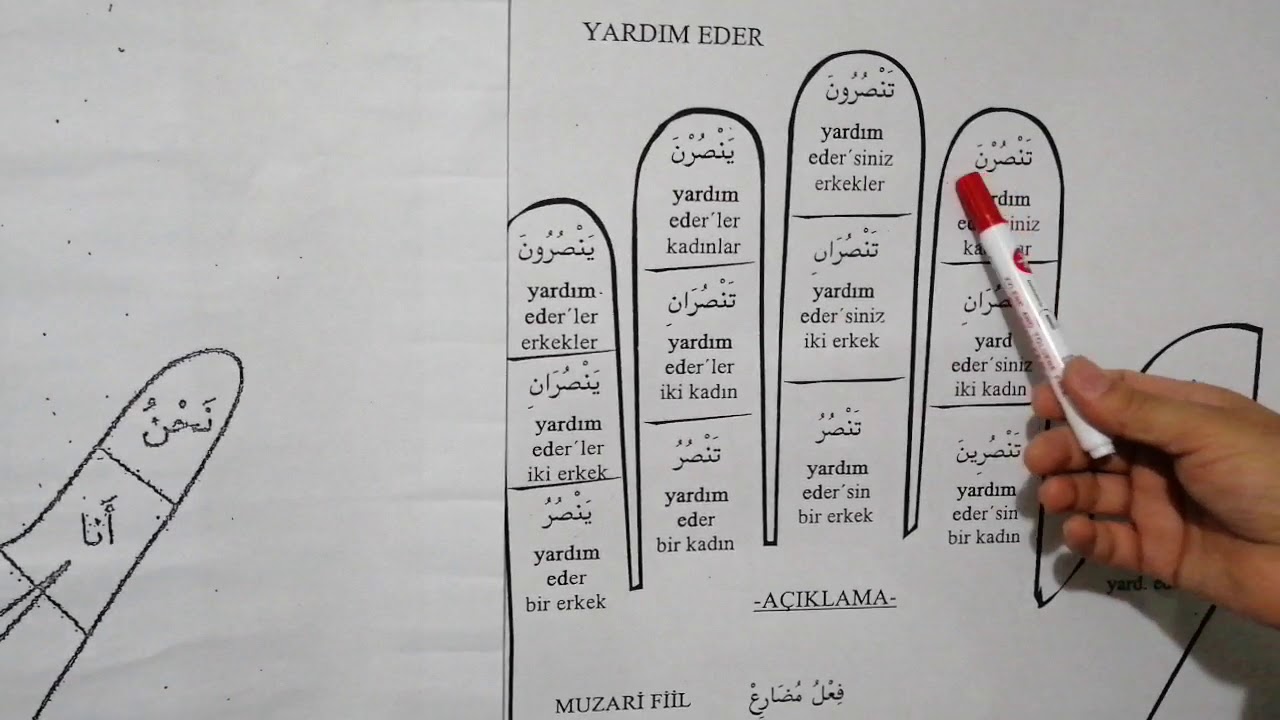 YARDIM EDER
نَحْنُ
أَنَا
يَنْصُرُونَ
yardım
eder´ler
erkekler
يَنْصُرَانِ
yardım
eder´ler
iki erkek
يَنْصُرُ
yardım
eder
bir erkek
يَنْصُرْنَ
yardım
eder´ler
kadınlar
تَنْصُرَانِ
yardım
eder´ler
iki kadın
تَنْصُرُ
yardım
eder
bir kadın
تَنْصُرُونَ
yardım
eder´siniz
erkekler
تَنْصُرَاںِ
yardım
eder´siniz
iki erkek
تَنْصُرُ
yardım
eder´sin
bir erkek
تَنْصُرْنَ
eder´siniz
iki kadın
تَنْصُرِينَ
yardım
eder´sin
bir kadın
yard.
-AÇIKLAMA-
MUZARİ FİİL فِعْلُ مُضَارِعْ